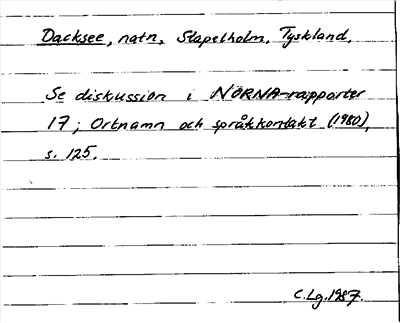 Dacksee, natn, Stapelholm, Tyskland.
Se diskussion i NORNA-rapporter
17; Ortnamn och språkkontakt (1980),
s. 125.
C.Lg.1987.